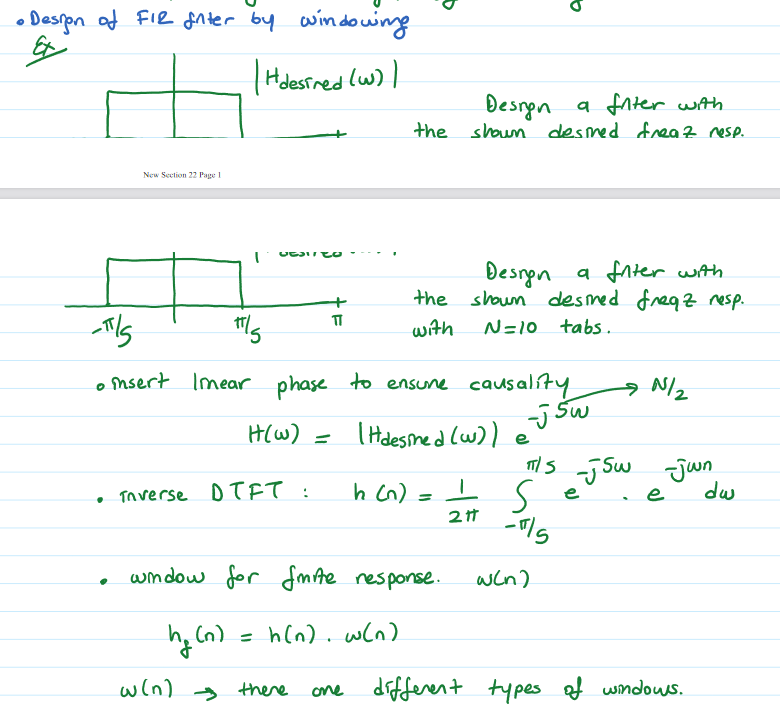 • Design of FIR filter by windowing
Ex
|Hdesired (ω)|
Design a filter with
the shown desired freqz resp.
New Section 22 Page 1
Design a filter with
the shown desired freqz resp.
with N=10 tabs.
-π/5 π/5 π
• insert linear phase to ensure causality → N/2
H(ω) = |Hdesired (ω)| e^{-j5ω}
• inverse DTFT : h(n) = 1/2π ∫_{-π/5}^{π/5} e^{-j5ω} . e^{-jωn} dω
• window for finite response. w(n)
h_f(n) = h(n) . w(n)
w(n) → there are different types of windows.